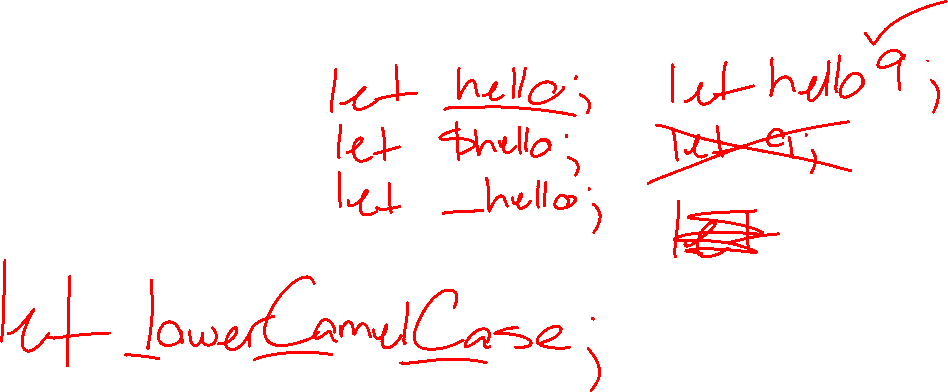 let hello; let hello9;
let $hello; let 9;
let _hello;
let lowerCamelCase;